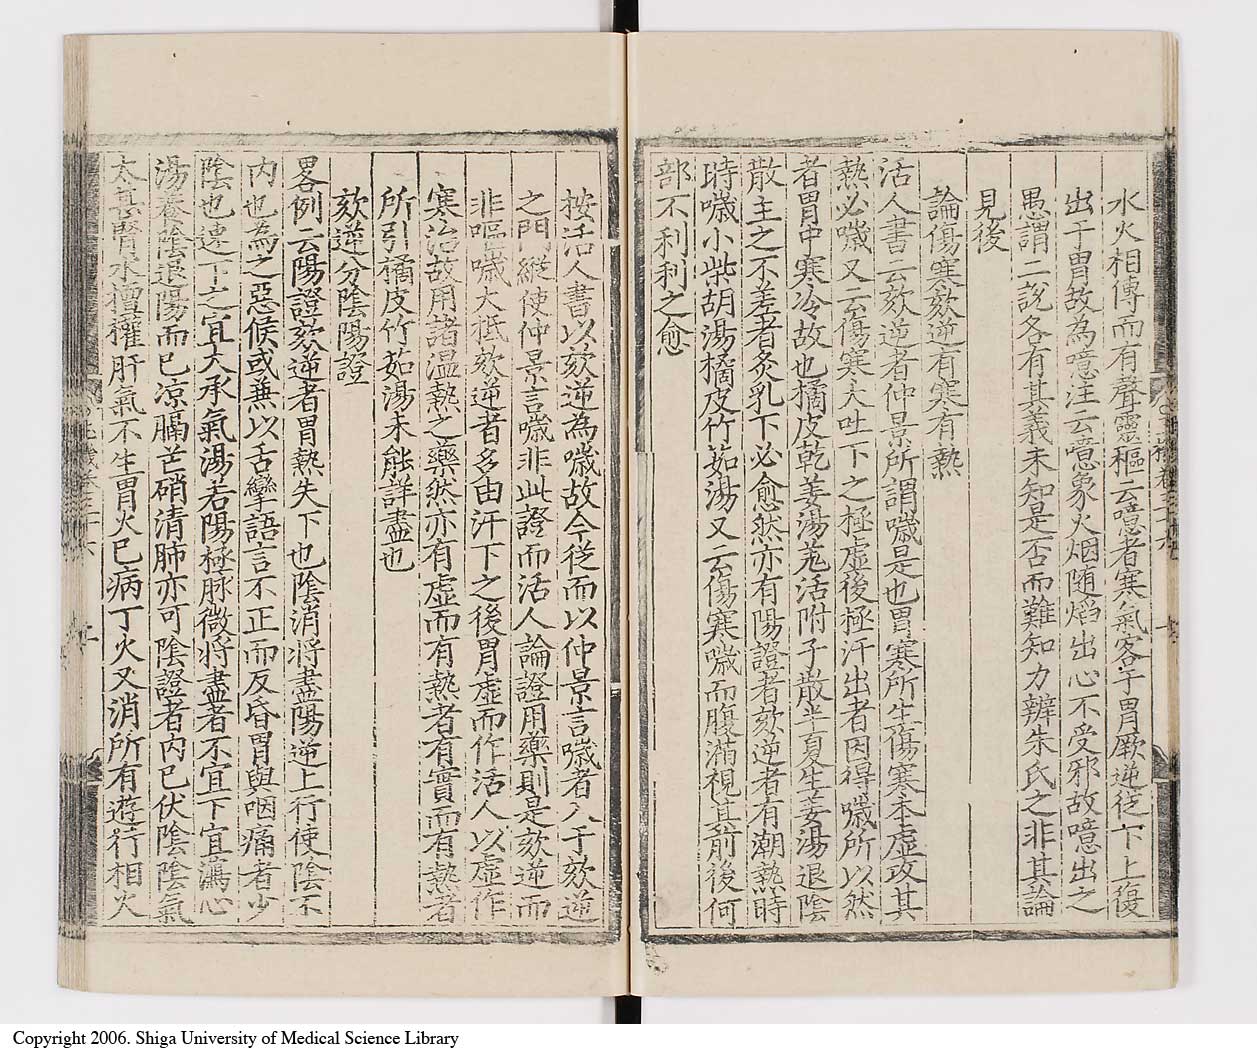 水火相傳而有聲靈樞云噫者寒氣客于胃厥逆從下上復
出于胃故為噫注云噫象火烟随焰出心不受邪故噫出之
愚謂二說各有其義未知是否而難知力辨朱氏之非其論
見後
論傷寒欬逆有寒有熱
活人書云欬逆者仲景所謂噦是也胃寒所生傷寒本虛攻其
熱必噦又云傷寒大吐下之極虛後極汗出者因得噦所以然
者胃中寒冷故也橘皮乾姜湯羗活附子散半夏生姜湯退陰
散主之不差者灸乳下必愈然亦有陽證者欬逆者有潮熱時
時噦小柴胡湯橘皮竹茹湯又云傷寒噦而腹滿視其前後何
部不利利之愈
按活人書以欬逆為噦故今從而以仲景言噦者入于欬逆
之門縱使仲景言噦非此證而活人論證用藥則是欬逆而
非嘔噦大抵欬逆者多由汗下之後胃虛而作活人以虛作
寒治故用諸温熱之藥然亦有虛而有熱者有實而有熱者
所引橘皮竹茹湯未能詳盡也
欬逆分陰陽證
畧例云陽證欬逆者胃熱失下也陰消將盡陽逆上行使陰不
内也為之惡候或兼以舌攣語言不正而反昏胃與咽痛者少
陰也速下之宜大承氣湯若陽極脉微將盡者不宜下宜瀉心
湯養陰退陽而已凉膈芒硝清肺亦可陰證者内已伏陰陰氣
太甚腎水擅權肝氣不生胃火已病丁火又消所有遊行相火
Copyright 2006. Shiga University of Medical Science Library